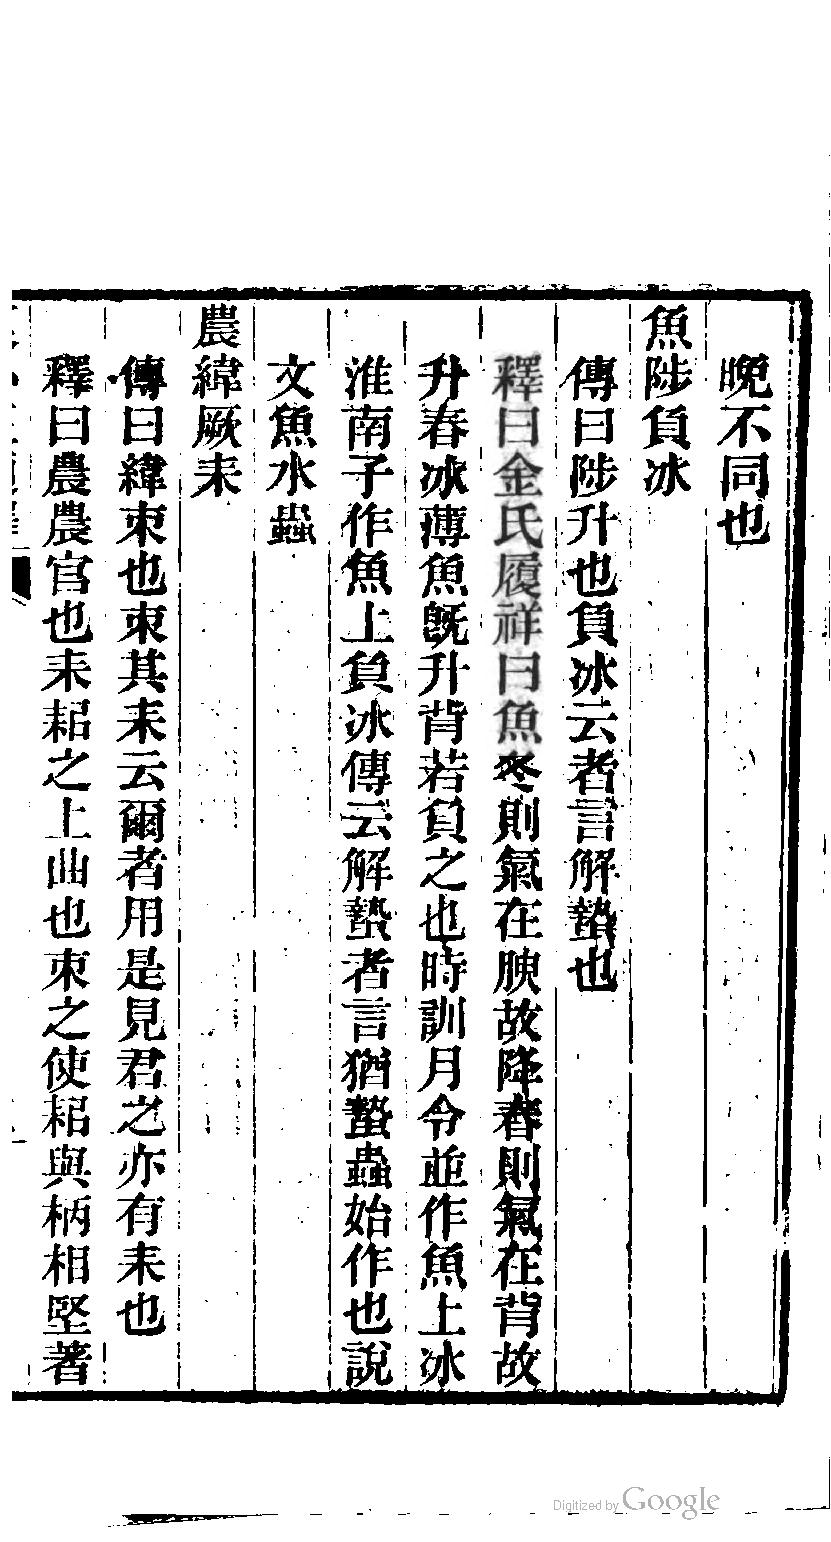 晚不同也
魚陟負冰
傳曰陟升也負冰云者言解蟄也
釋曰金氏履祥曰魚冬則氣在腴故降春則氣在背故
升春冰薄魚旣升背若負之也時訓月令並作魚上冰
淮南子作魚上負冰傳云解蟄者言猶蟄蟲始作也說
文魚水蟲
農緯厥耒
傳曰緯束也束其耒云爾者用是見君之亦有耒也
釋曰農農官也耒耜之上曲也束之使耜與柄相堅著
Digitized by Google